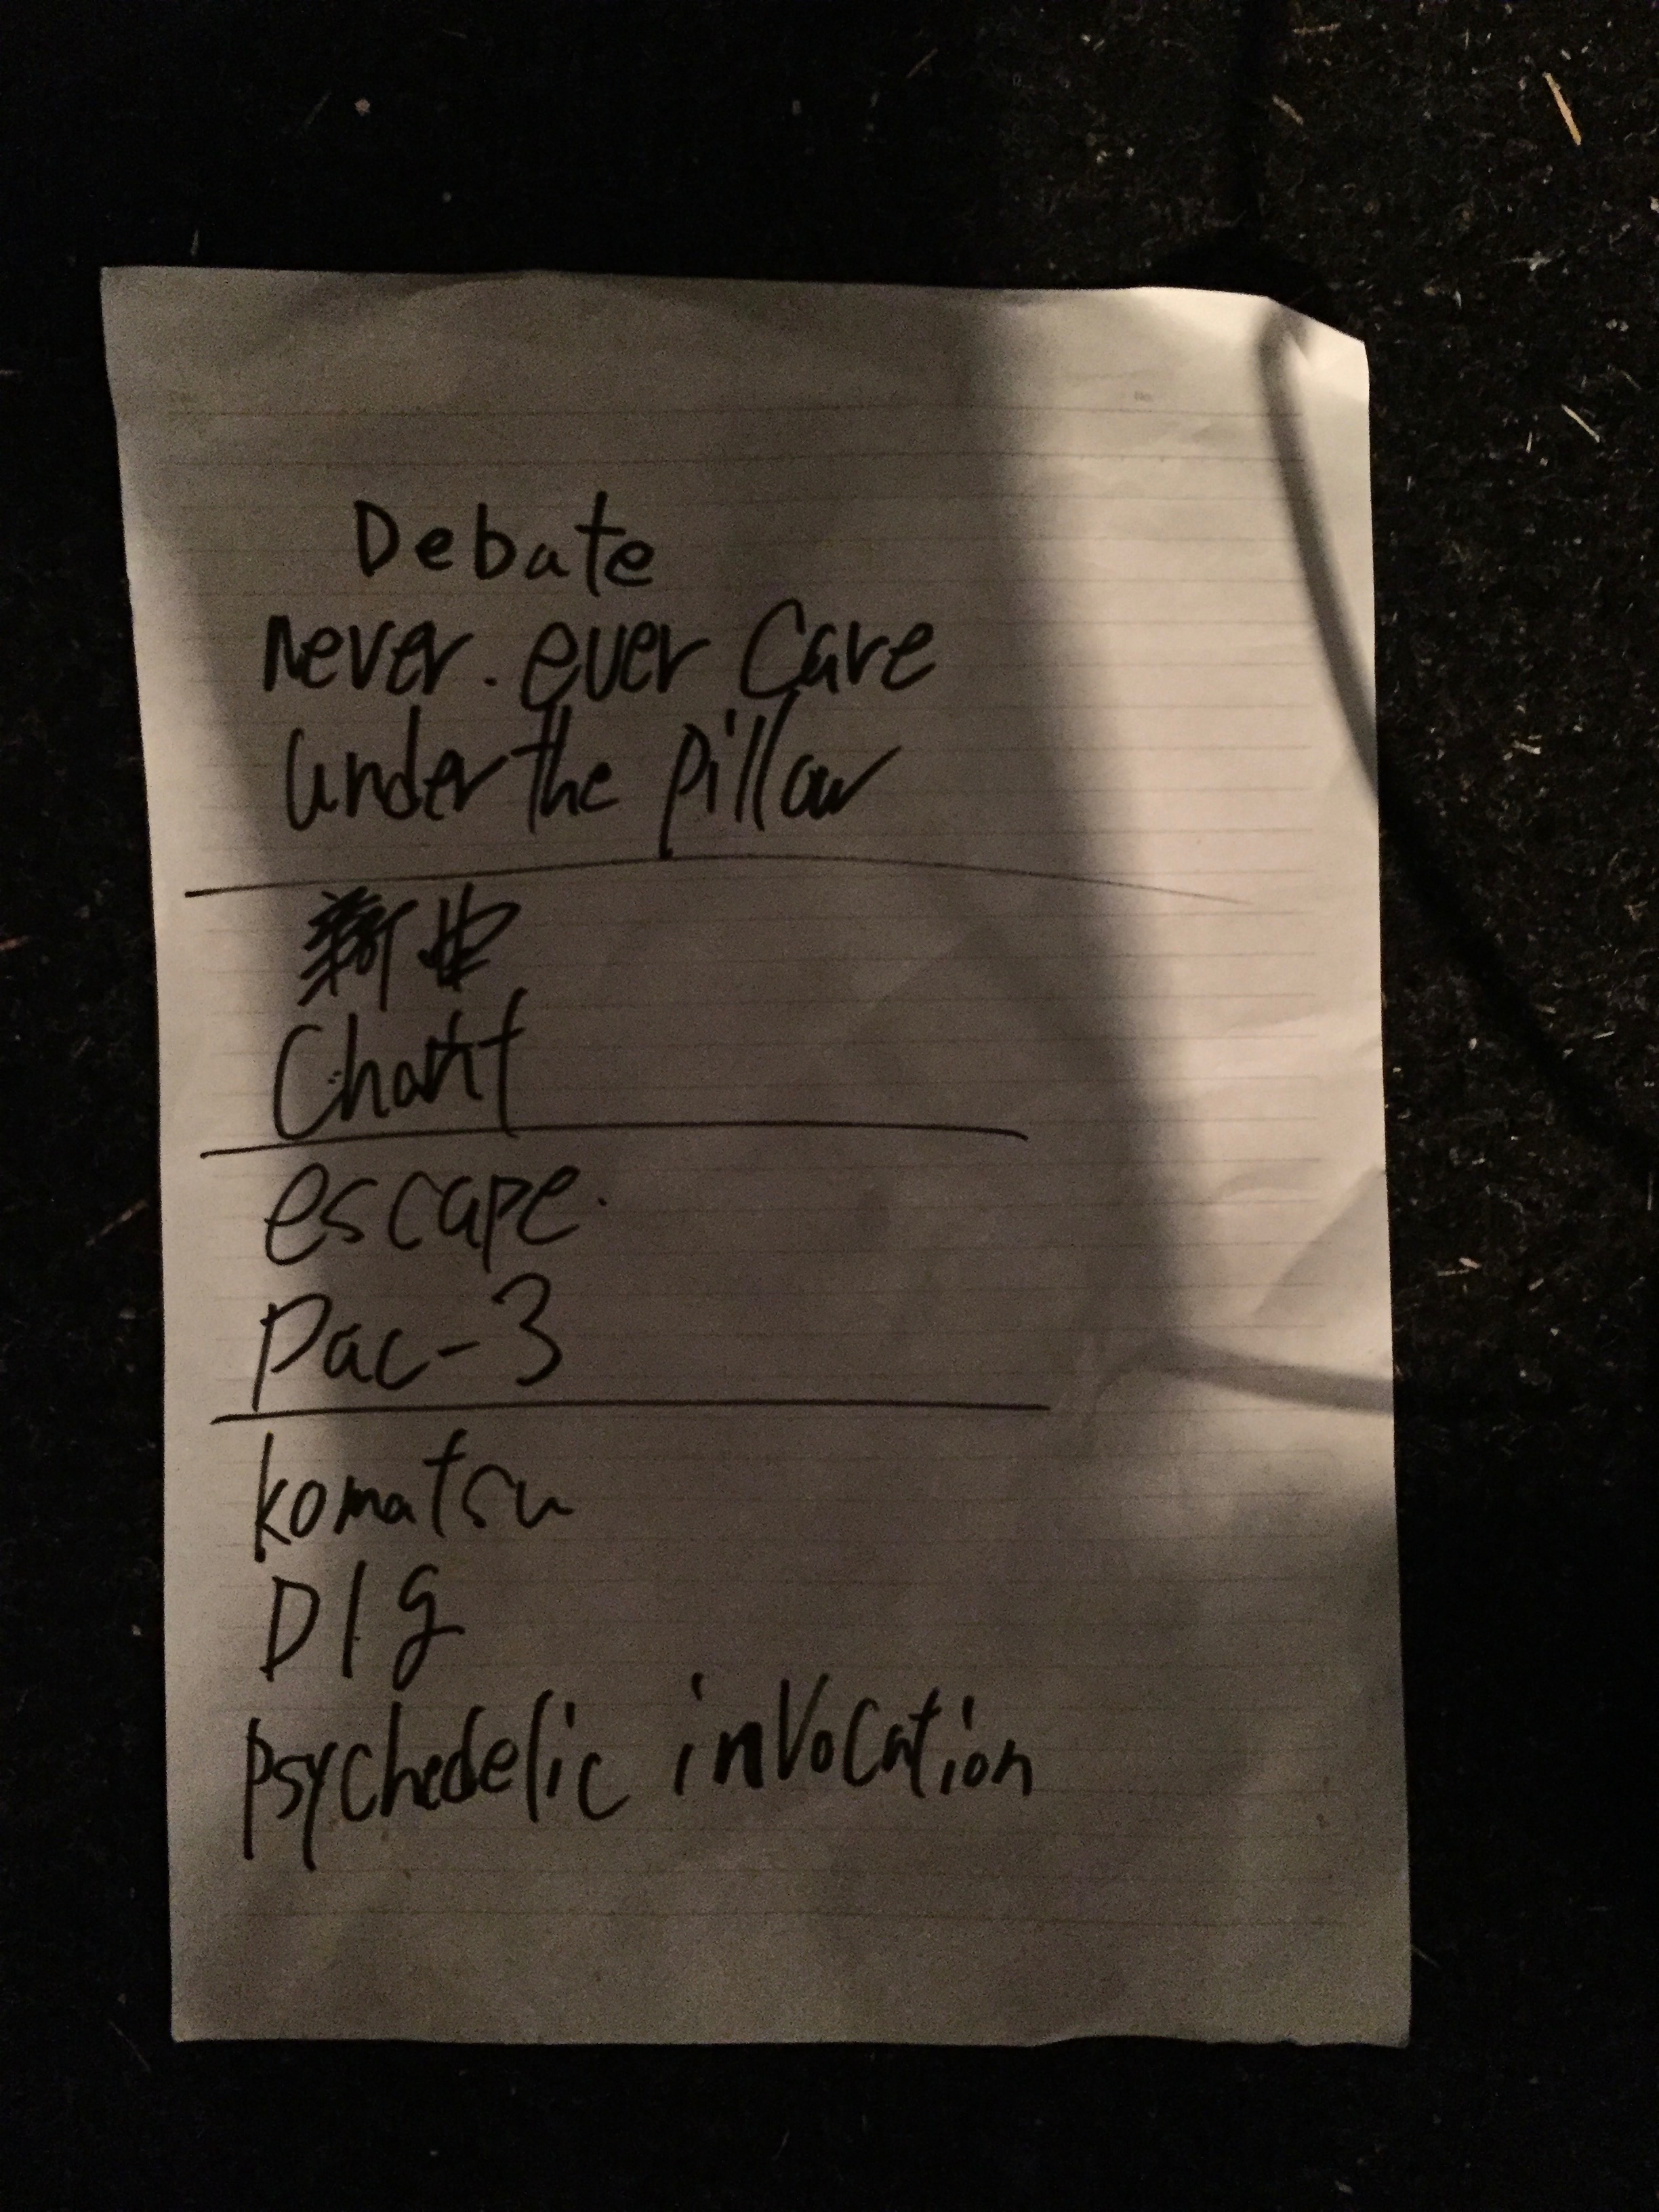 Debate
never. ever Care
under the pillow
新曲
Chant
escape.
Pac-3
komatsu
DIg
psychedelic inVocation